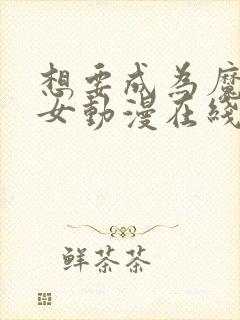 想要成为魔
女动漫在线
鲜茶茶